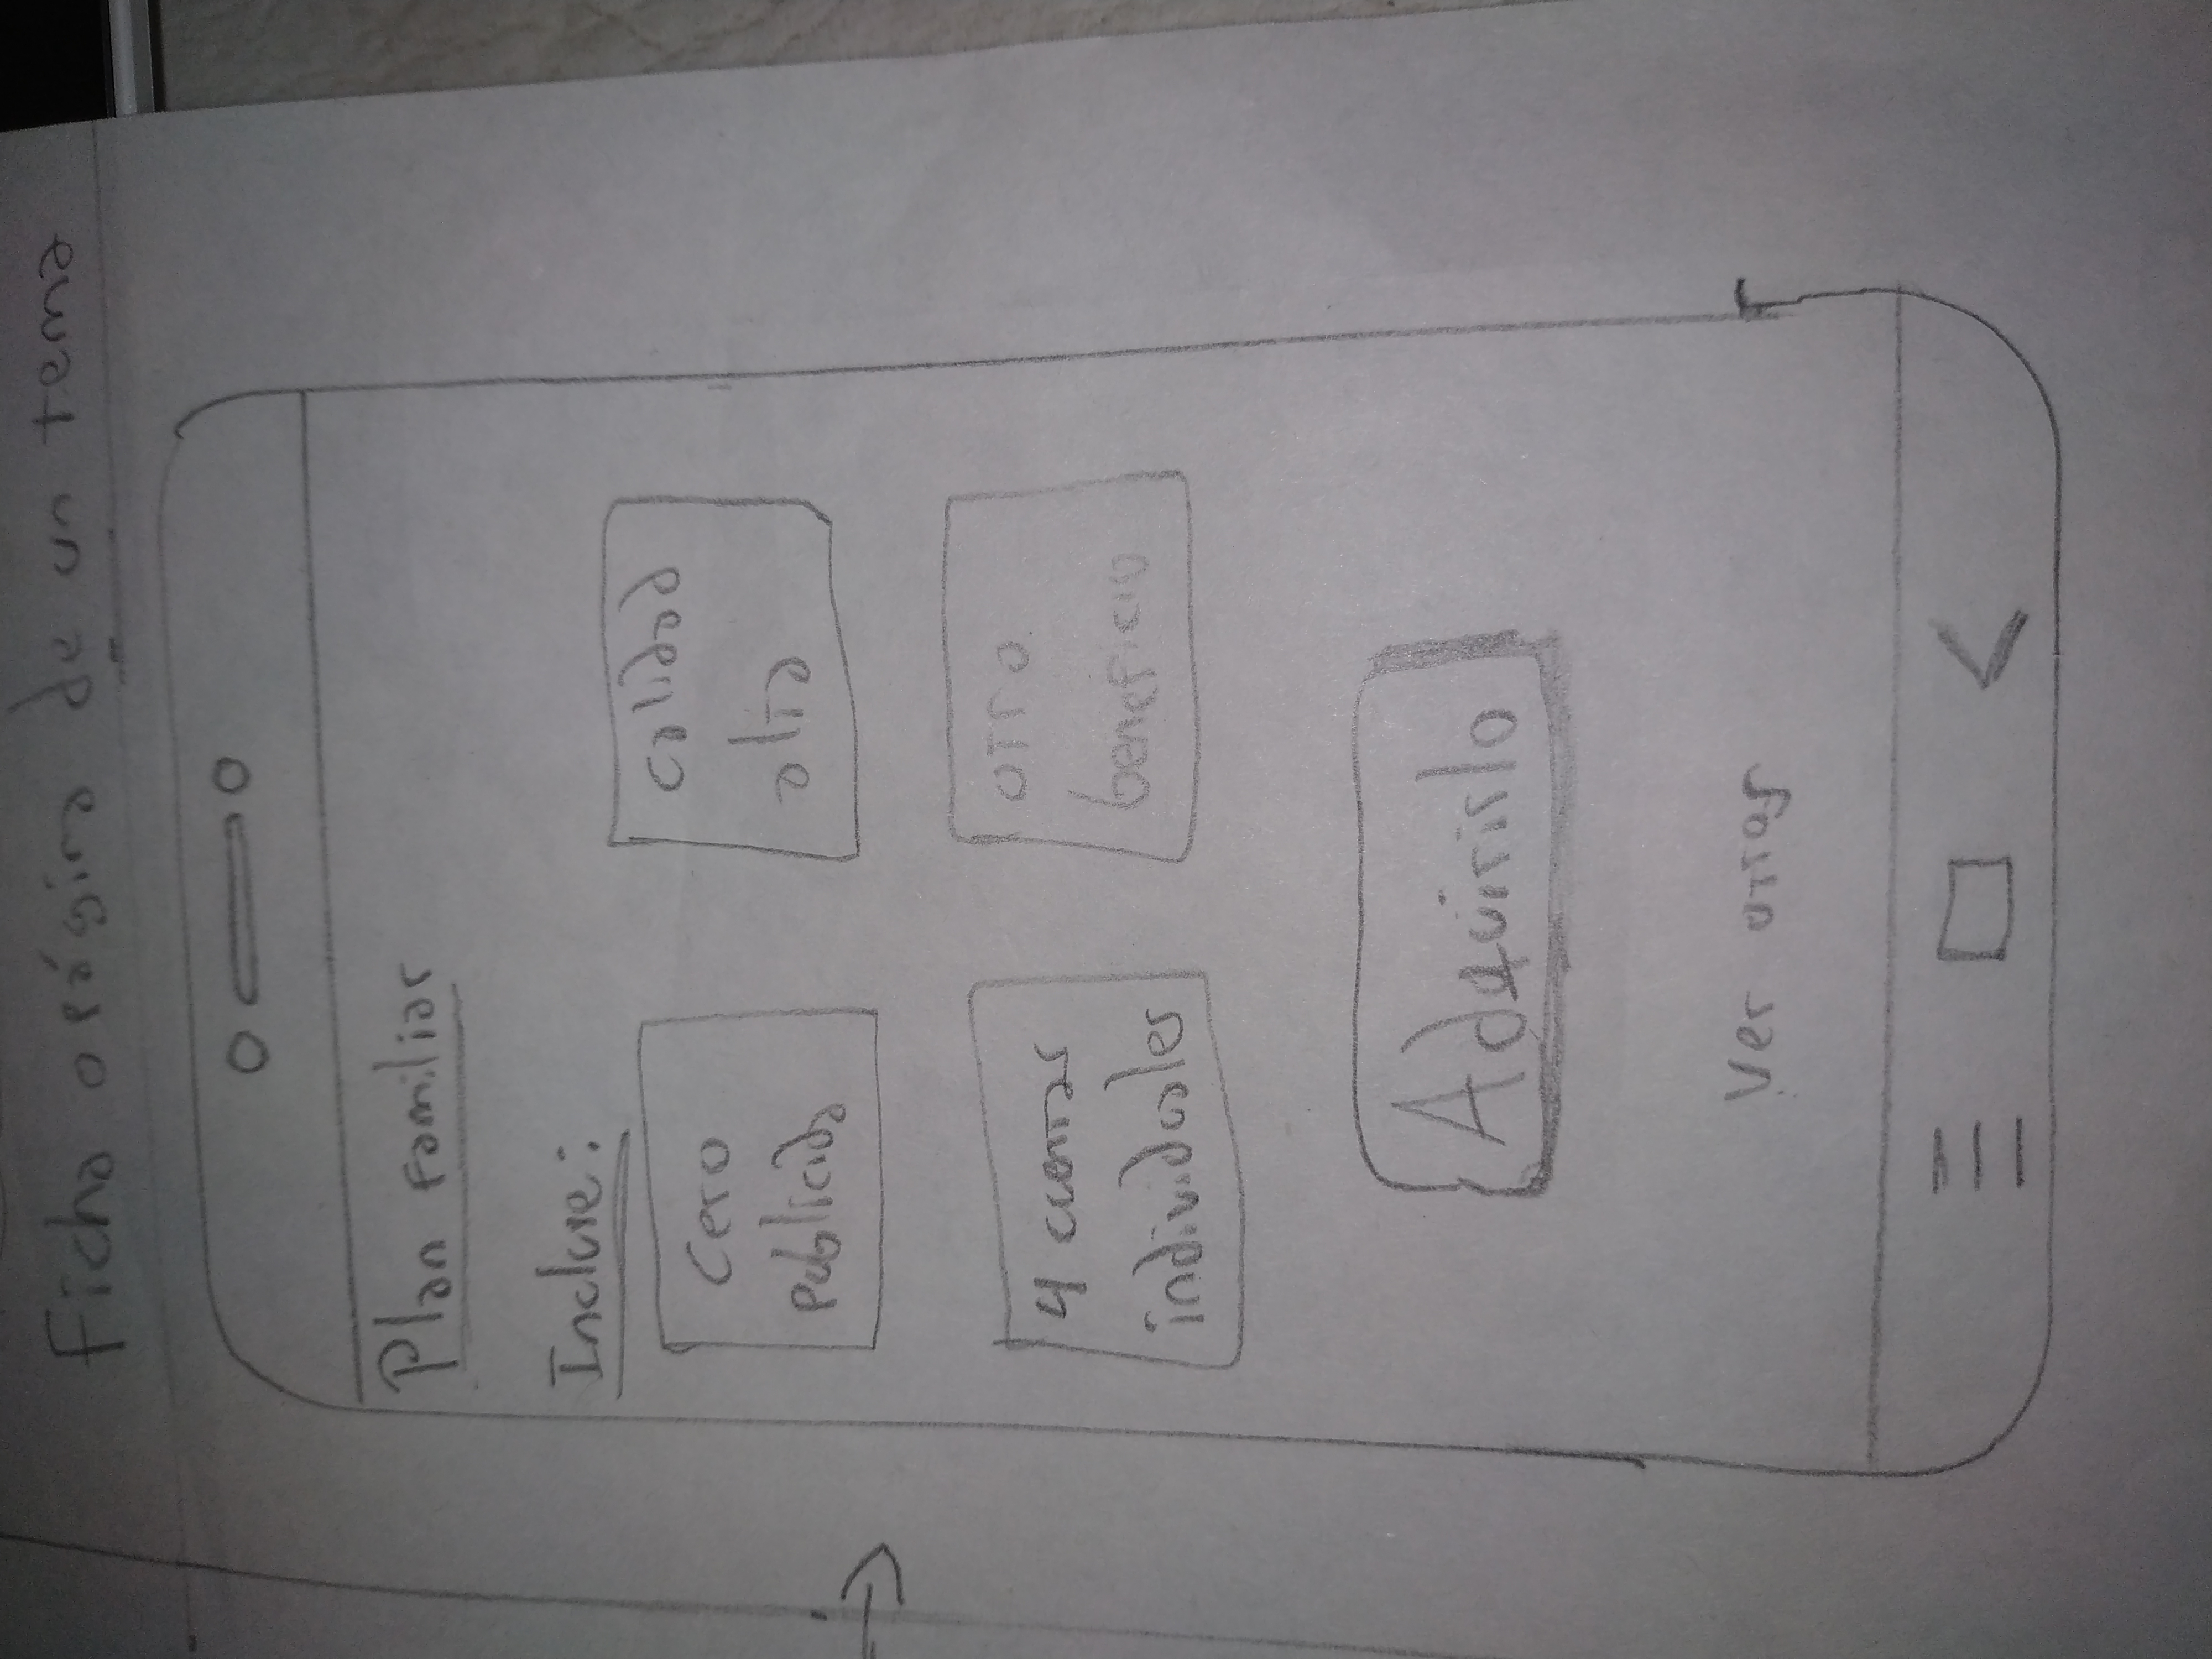 Ficha o página de un tema
Plan Familiar
Incluye:
Cero
publicida
calidad
alta
4 cuentas
individuales
otro
beneficio
Adquirirlo
Ver otros